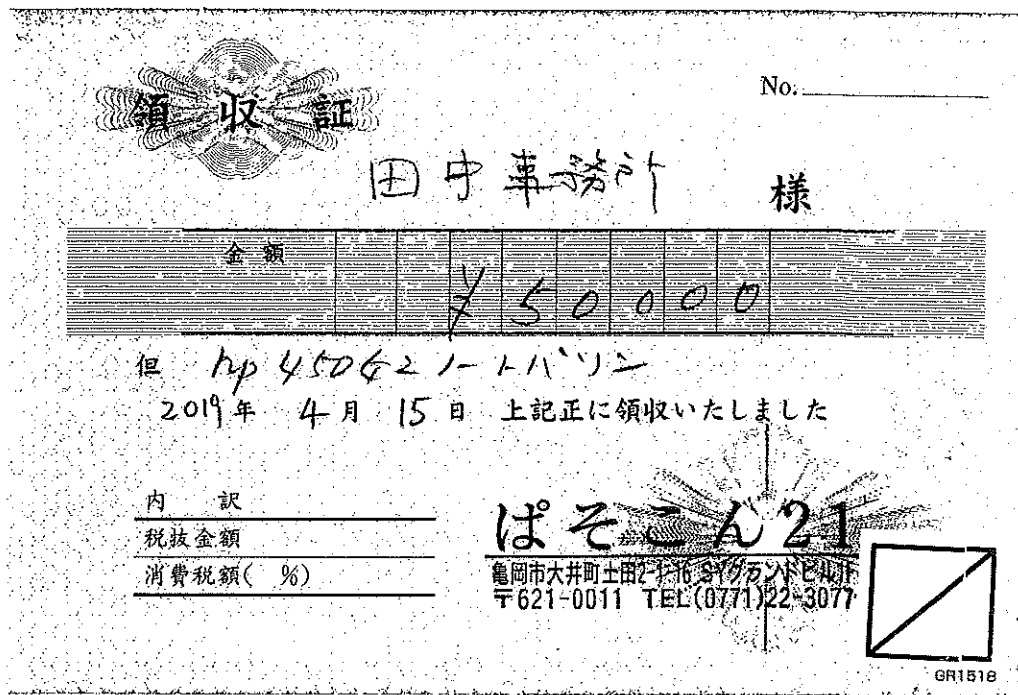 領収証
No.
田中事務所 様
金額 ¥50000
但 hp 450G2 ノートパソコン
2019年 4月 15日 上記正に領収いたしました
内訳
税抜金額
消費税額( %)
ぱそこん21
亀岡市大井町土田2-1-16 SYグランドビル1F
〒621-0011 TEL(0771)22-3077
GR1518